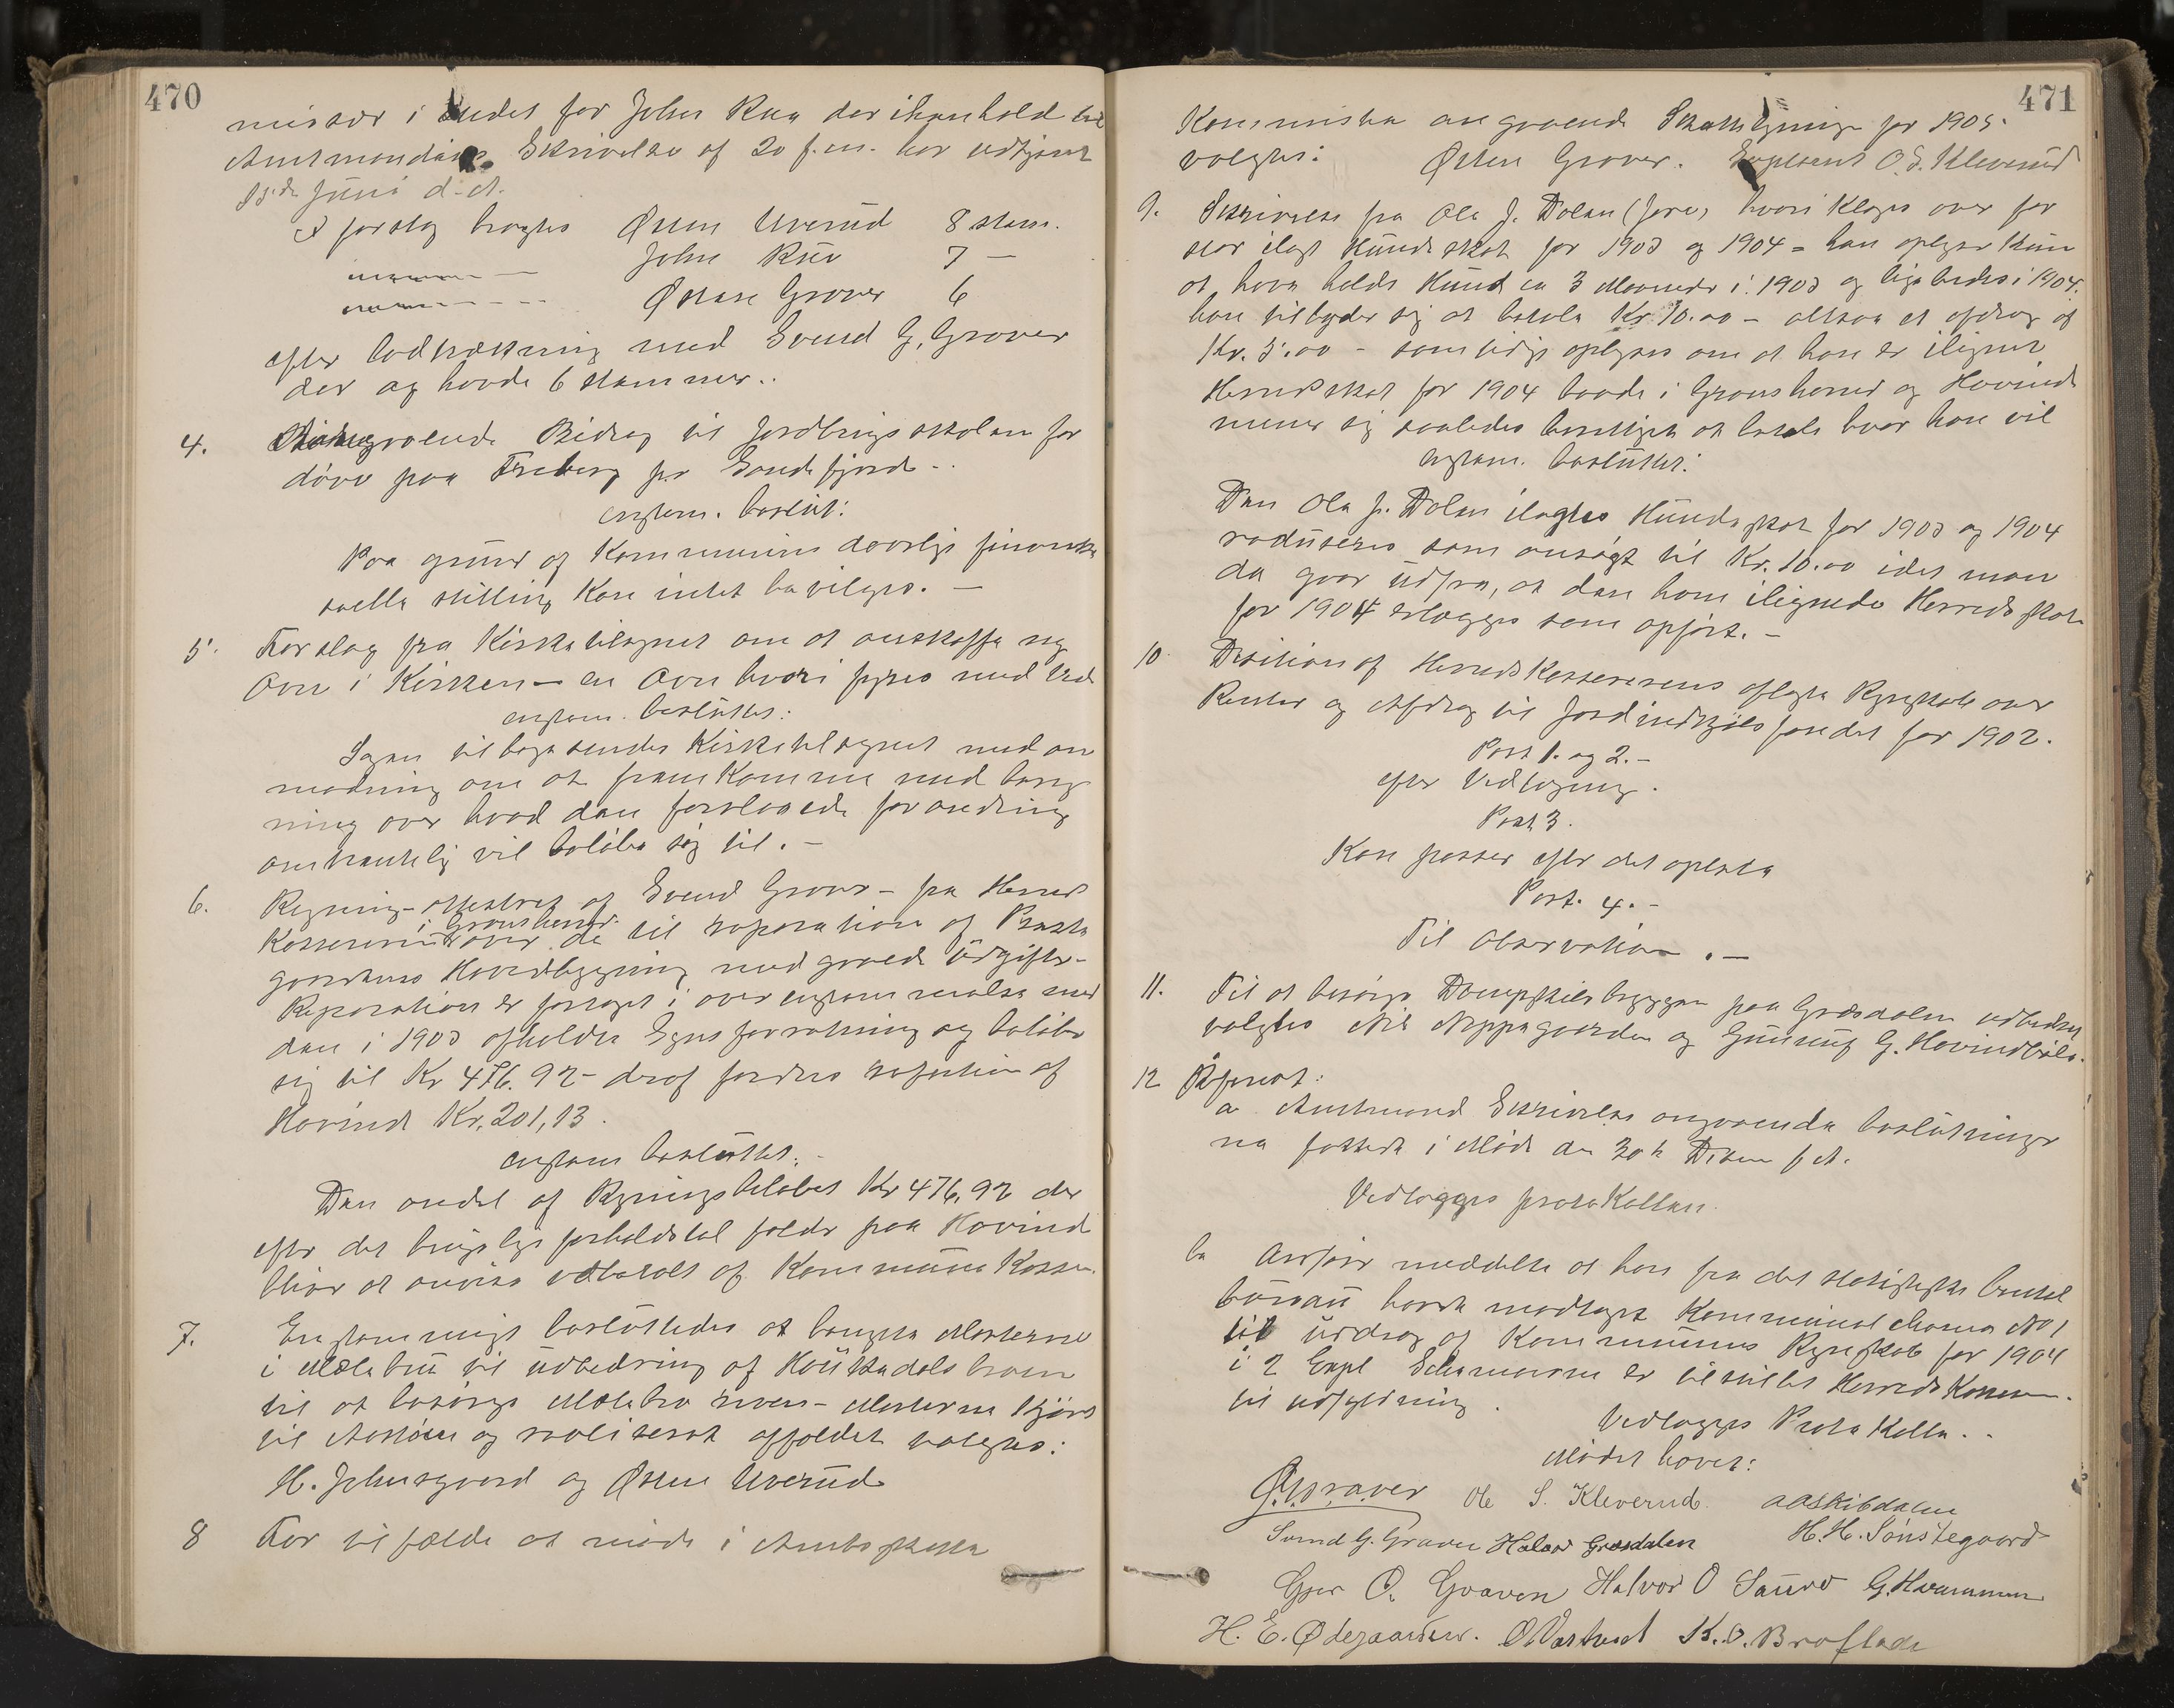 470
missær i stedet for John Rua der ihenhold til
Amtmandens Skrivelse af 20 f.m. har udtjent
15de Juni d.A.
I forslag bragtes Østen Uverud 8 stem.
John Rue 7 —
Østen Graver 6
efter lodtrækning med Svend G. Graver
der og havde 6 stemmer..
4. Angaaende Bidrag til forædlings skolen for
døve paa Freberg pr Sandefjord..
enstem. beslut:
Paa grund af Kommunens daarlige finan
sielle stilling Kan intet bevilges. —
5. Forslag fra Kirketilsynet om at anskaffe ny
Ovn i Kirken — en Ovn hvori fyres med Ved
enstem. besluttes:
Sagen tilbagesendes Kirketilsynet med an
modning om at fremkomme med bereg
ning over hvad den foreslaaede forandring
omtrentelig vil beløbe sig til. —
6. Regning attestret af Svend Graver — fra Herreds
i Gransherred
Kassereren over de til reparation af Præste
gaardens Hovedbygning medgaaede Udgifter —
Reparation er foretaget i overenstemmelse med
den i 1903 afholdte Synsforretning og beløber
sig til Kr 476.92 — deraf fordres refusion af
Hovind Kr. 201,13.
enstem besluttet: —
Den andel af Regningsbeløbet Kr 476.92 der
efter det brugelige forholdstal falder paa Hovind
bliver at anvise udbetalt af Kommune Kassen.
7. Enstemmigt besluttedes at benytte Materialerne
i Mælabru til udbedring af
til at besørge Mælabro reven — Materialerne Kjørt
til Auktion og realiseret affaldet valgtes:
H. Johnsgaard og Østen Uverud
8 For tilfælde at møde i Amtsskatte
471
Kommision angaaende Skatteligning for 1905.
valgtes: Østen Graver. Supleant O. S. Kleverud
9. Skrivelse fra Ole J. Dolen (Jore) hvori Klages over for
stor ilagt Hundeskat for 1903 og 1904 = han oplyser Kun
at have holdt Hund ca 3 Maaneder i 1903 og ligeledes i 1904.
han tilbyder sig at betale Kr 10.00 — altsaa et afdrag af
Kr. 5.00 — samtidig oplyses om at han er ilignet
Herredsskat for 1904 baade i Gransherred og Hovind
mener sig saaledes berettiget at betale hvor han vil
enstem. besluttet:
Den Ole J. Dolen ilagte Hundeskat for 1903 og 1904
reduseres som ansøgt til Kr. 10.00 idet man
da gaar ud fra, at den ham ilignede Herredsskat
for 1904 erlægges som opført. —
10 Desition af HerredsKassererens aflagte Regnskab over
Renter og Afdrag til Jordindkjøbsfondet for 1902.
Post 1. og 2. —
efter Vedtegning.
Post 3.
Kan passer efter det oplyste
Post. 4. —
Til Observation. —
11. Til at besørge Dampskibsbryggen paa Græsdalen udbedret
valgtes Nils Neppegaarden og Gunnuf G. Hovindbøle.
12 Referat:
a Amtmand Skrivelse angaaende beslutninger
ne fattede i Møde den 30te Desem f.A.
Vedlægges protoKollen.
b Ordfører meddelte at han fra det statistiske central
bureau havde modtaget Kommunal Skema No 1
til Uddrag af Kommunens Regnskab for 1904
i 2 Expl Schemaerne er tilstillet Herreds Kasseren.
til udfyldning.
Vedlægges ProtoKollen. .
Mødet hævet:
Ø. Graver Ole S. Kleverud. AASkibdalen
Svend G. Graver Halvor Græsdalen H. H. Sønstegaard
Gjer O. Graven Halvor O Saure G. Hvammen
H. E. Ødegaarden. O Vartveit K. O. Broflade